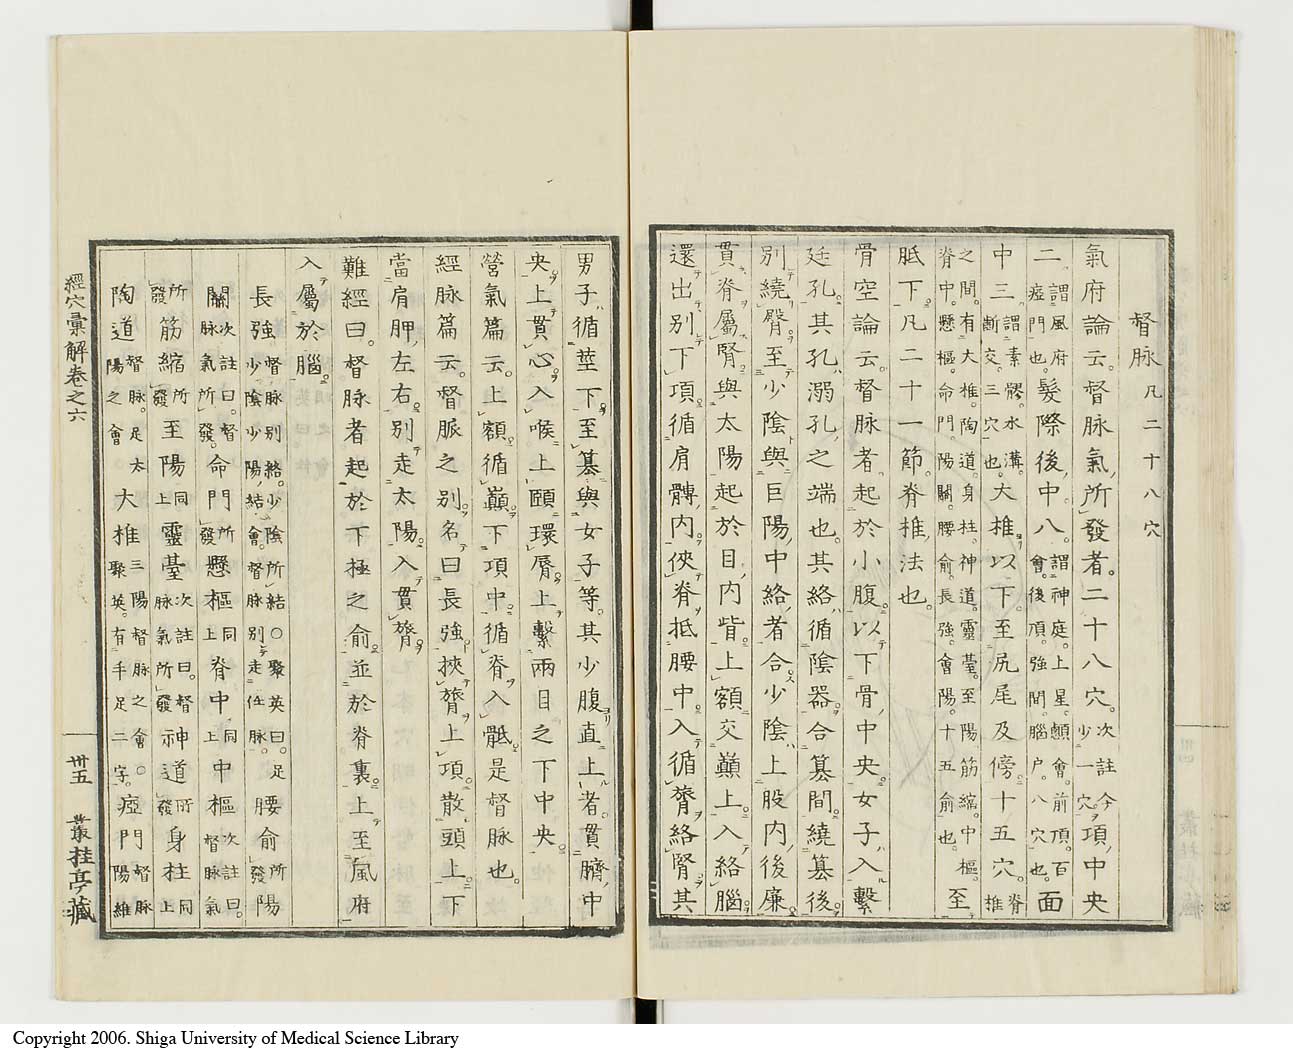 督脉凡二十八穴
氣府論云。督脉氣所發者。二十八穴。次註今少一穴項中央
二。謂風府瘂門也。髮際後中八。謂神庭。上星。顖會。前頂。百會。後頂。強間。腦户。八穴也。面
中三。謂素髎。水溝。齗交。三穴也。大椎以下。至尻尾及傍十五穴。脊椎
之間。有大椎。陶道。身柱。神道。靈臺。至陽。筋縮。中樞。脊中。懸樞。命門。陽關。腰俞。長強。會陽。十五俞也。至
骶下。凡二十一節。脊椎法也。
骨空論云。督脉者。起於小腹。以下骨中央。女子入繫
廷孔。其孔溺孔之端也。其絡循陰器。合篡間。繞篡後。
別繞臀至少陰。與巨陽中絡者合少陰。上股内後廉。
貫脊屬腎。與太陽起於目内眥。上額交巔上。入絡腦。
還出別下項。循肩髆内。俠脊抵腰中。入循膂絡腎。其
男子循莖下至篡。與女子等。其少腹直上者。貫臍中
央。上貫心入喉。上頤環脣。上繫兩目之下中央。
營氣篇云。上額循巔。下項中。循脊入骶。是督脉也。
經脉篇云。督脈之別。名曰長強。挾膂上項。散頭上。下
當肩胛左右。別走太陽。入貫膂。
難經曰。督脉者起於下極之俞。並於脊裏。上至風府
入屬於腦。
長強督脉別絡。少陰所結。少陰少陽結會。督脉別走任脉。○聚英曰。足腰俞所發陽
關次註曰。督脉氣所發。命門所發懸樞上同脊中上同中樞次註曰。督脉氣
所發筋縮所發至陽上同靈臺次註曰。督脉氣所發神道所發身柱上同
陶道督脉。足太陽之會大椎三陽督脉之會。○聚英。有手足二字。瘂門督脉陽維
經穴彙解卷之六
卅五
叢桂亭藏
Copyright 2006. Shiga University of Medical Science Library